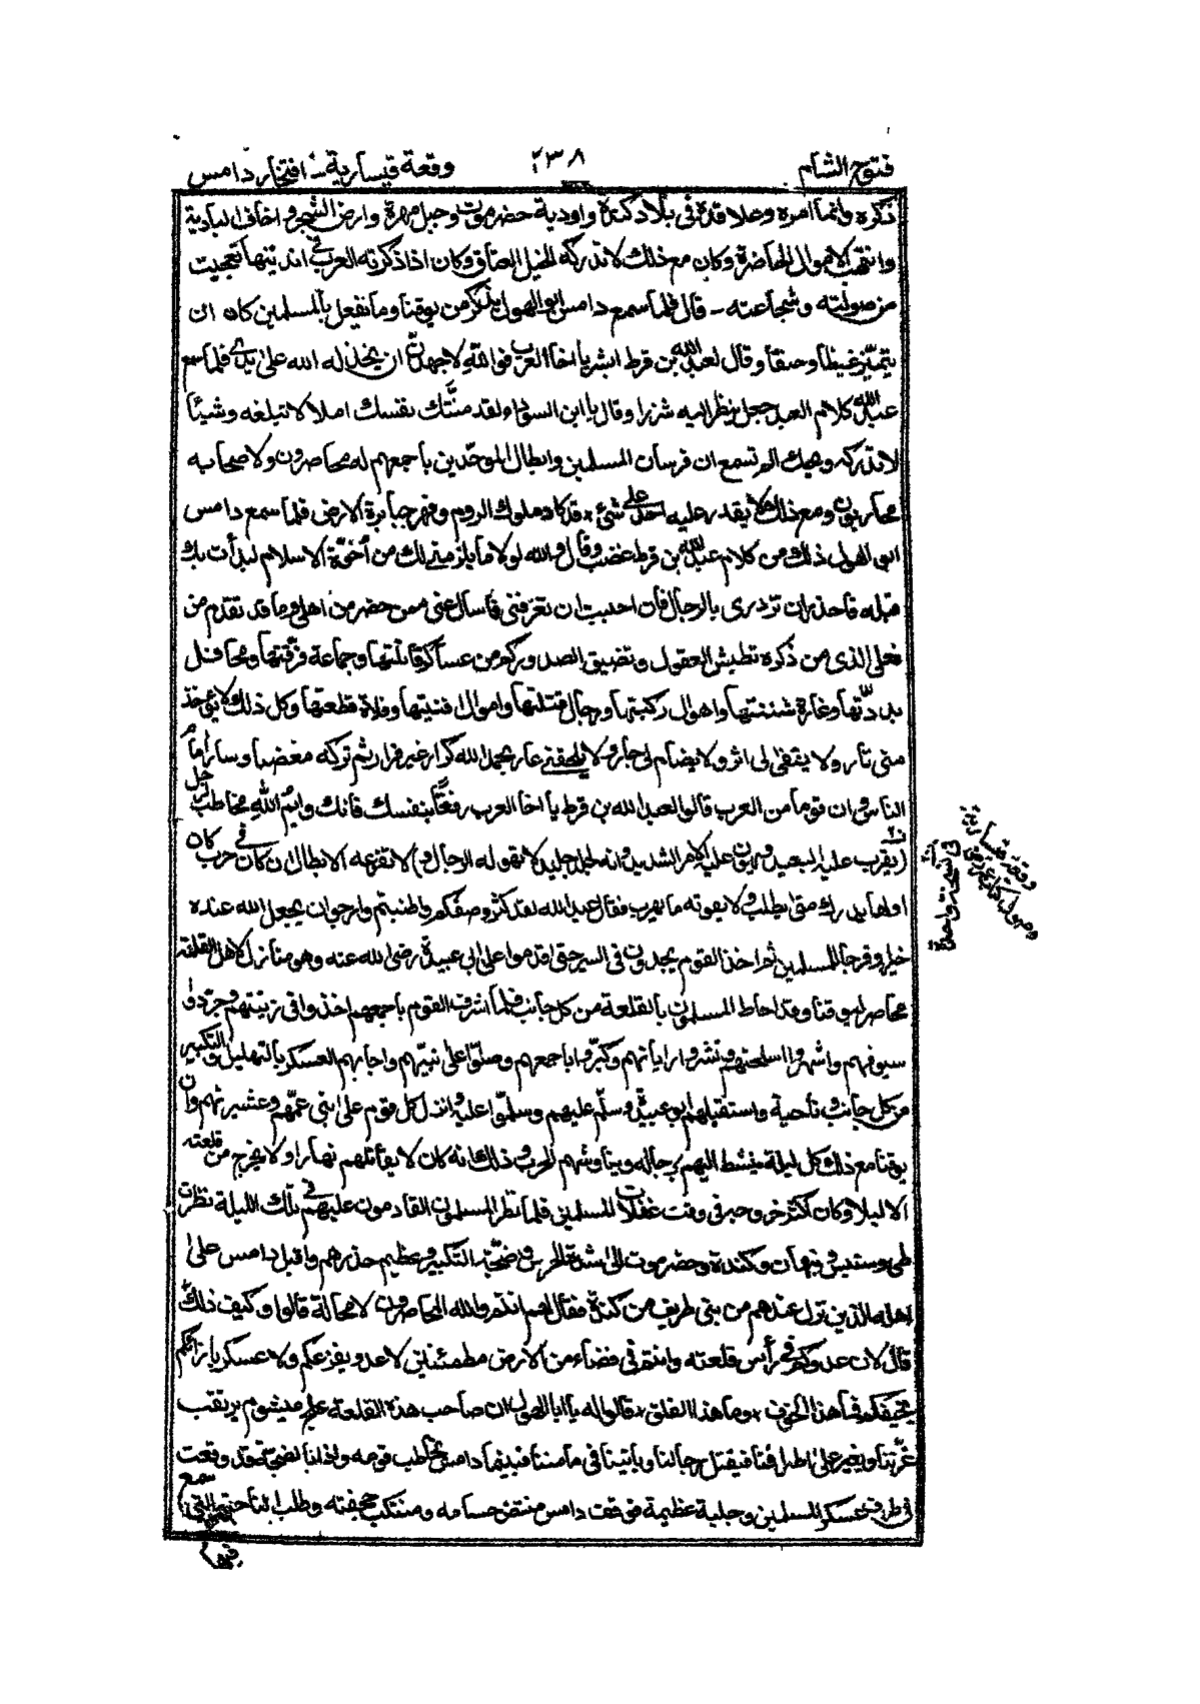 فتوح الشام ٢٣٨ وقعة قيسارية - افتخار دامس
ذكره وانما امره وعلا قدره فى بلاد كندة واودية حضرموت وجبل مهرة وارض الشجر واخاف البادية
وانتهب الاموال الحاضرة وكان مع ذلك لاتدركه الخيل العتاق وكان اذا ذكرته العرب فى انديتها تعجبت
من صولته وشجاعته - قال فلما سمع دامس ابو الهول بذكر من يوقنا وما تفعل بالمسلمين كان ان
يتميّز غيظا وحنقا وقال لعبد الله بن قرط ابشر يا اخا العرب فو الله لاجهدنّ ان يخذله الله على يدى فلما سمع
عبد الله كلام العبد جعل ينظر اليه شزرا وقال يا ابن السوداء لقد منّتك نفسك املا لا تبلغه وشيئا
لا تدركه ويحك الم تسمع ان فرسان المسلمين وابطال الموحّدين باجمعهم له محاصرون ولاصحابه
محاربون ومع ذلك لا يقدر عليه احد على شئ قد كاد ملوك الروم وقهر جبابرة الارض فلما سمع دامس
ابو الهول ذلك من كلام عبد الله بن قرط غضب وقال والله لولا ما يلزمنى لك من اخوّة الاسلام لبدأت بك
قبله فاحذر ان تزدرى بالرجال فان احببت ان تعرفنى فاسال عنى ممن حضر من اهلى وما قد تقدم من
فعلى الذى من ذكره تطيش العقول وتضيق الصدور كم من عساكر قاتلتها وجماعة فرّقتها ومحافل
بددّتها وغارة شننتها واهوال ركبتها ورجال قتلتها واموال افنيتها وفلاة قطعتها وكل ذلك ولا يؤخذ
منى ثار ولا يقتفى لى اثر ولا يضام لى جار ولا يلحقنى عار بحمد الله كرار غير فرار ثم تركه مغضبا وسار امام
الناس وان قوما من العرب قالوا لعبد الله بن قرط يا اخا العرب رفقا بنفسك فانك وايم الله مخاطب لرجل
يقرب عليه البعيد ويهون عليه الامر الشديد وانه لجلد جليد لا تهوله الرجال ولا تفزعه الابطال ان كان فى حرب كان
اولها يدرك متى يطلب ولا يفوته ما يهرب فقال عبد الله لقد كثر وصفكم واطنبتم وارجو ان يجعل الله عنده
خيرا وفرجا للمسلمين ثم اخذ القوم يجدون فى السير حتى قدموا على ابى عبيدة رضى الله عنه وهو منازل لاهل القلعة
محاصر ليوقنا وقد احاط المسلمون بالقلعة من كل جانب فلما اشرف القوم باجمعهم اخذوا فى زينتهم وجرّدوا
سيوفهم واشهروا اسلحتهم ونشروا راياتهم وكبّروا باجمعهم وصلّوا على نبيّهم واجابهم العسكر بالتهليل والتكبير
من كل جانب وناحية واستقبلهم ابو عبيدة وسلّم عليهم وسلموا عليه وانزل كل قوم على ابنى عمّهم وعشيرتهم وان
يوقنا مع ذلك كل ليلة ينبسط اليهم برجاله ويناوشهم الحرب وذلك انه كان لا يقاتلهم نهارا ولا يخرج من قلعته
الا ليلا وكان اكثر خروجه فى وقت غفلات المسلمين فلما نظر المسلمون القادمون عليهم فى تلك الليلة نظرت
طى وسنبس ونبهان وكندة وحضرموت الى شدة الحرس وضجّة التكبير وعظيم حذرهم واقبل دامس على
اهله الذين نزل عندهم من بنى طريف من كندة فقال لهم انتم والله المحاصرون لا محالة قالوا وكيف ذلك
قال لان عدوكم فى رأس قلعته وانتم فى فضاء من الارض مطمئنين لا عدو يفزعكم ولا عسكر بازائكم
يخيفكم فما هذا الخوف وما هذا القلق قالوا له يا ابا الهول ان صاحب هذه القلعة علج ميشوم يرتقب
غرّتنا ويغير على اطرافنا فيقتل رجالنا وياتينا فى مامننا فبينما دامس يخاطب قومه واذا بالضجة قد وقعت
فى طرف عسكر المسلمين وجلبة عظيمة فوقف دامس منتض حسامه ومنتكب حجفته وطلب الناحية التى سمع
فيها